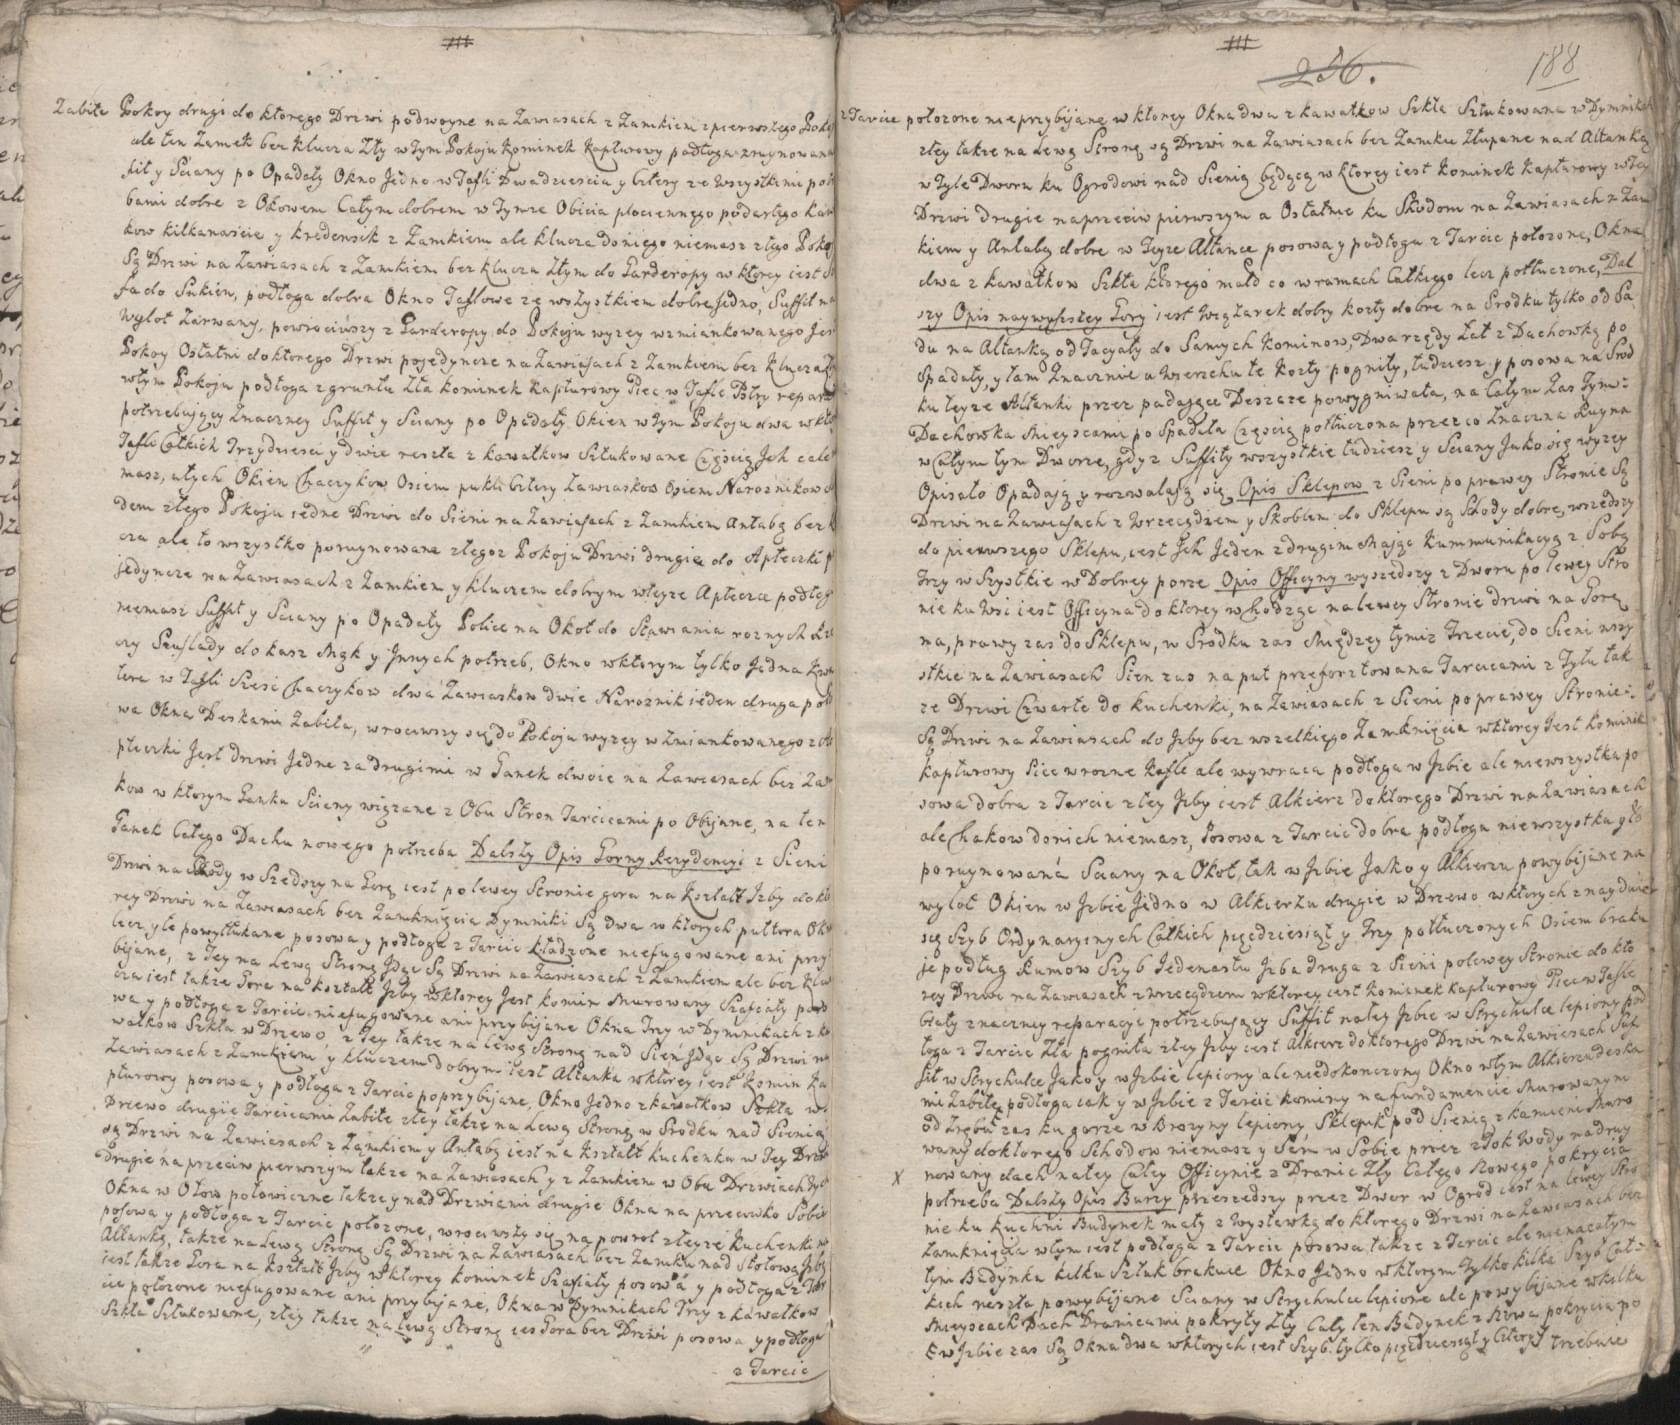 Zabite Pokoy drugi do ktorego Drzwi podwoyne na Zawiasach z Zamkiem z pierwszego Poko
ale ten Zamek bez klucza Zły w tym Pokoju Kominek Kapturowy podłoga zruynowana
fit y Sciany po Opadały Okno Jedno w Tafli Dwadziescia y cztery ze Wszystkimi po
bami dobre z Okowem Całym dobrem w Tymze Obicia płociennego podartego Kaw
kow kilkanascie y kredensik z Zamkiem ale klucza do niego niemasz z tego Poko
Są Drzwi na Zawiasach z Zamkiem bez klucza Złym do Garderopy w ktorey iest
fa do Sukien, podłoga dobra Okno Taflowe ze wszystkiem dobre Jedno, Suffit na
wylot Zarwany, powrociwszy z Garderopy do Pokoju wyzey wzmiankowanego Jes
Pokoy Ostatni do ktorego Drzwi pojedyncze na Zawiasach z Zamkiem bez Klucza
w tym Pokoju podłoga z gruntu Zła Kominek Kapturowy Piec w Tafle Biały repara
potrzebujący Znaczney Suffit y Sciany po Opadały Okien w tym Pokoju dwa w kto
Tafli Całkich Trzydziesci y dwie reszta z kawałkow Sztukowane Częścią Jch całe
masz, u tych Okien Chaczykow Osiem pukli cztery Zawiaskow Osiem Naroznikow
dem z tego Pokoju iedne Drzwi do Sieni na Zawiasach z Zamkiem Antabą bez k
cza ale to wszystko poruynowane z tegoz Pokoju Drzwi drugie do Apteczki p
jedyncze na Zawiasach z Zamkiem y kluczem dobrym w teyze Apteczce podłog
niemasz Suffit y Sciany po Opadały Police na Okoł do Stawiania roznych Rze
czy Szuflady do kasz Mąk y Jnnych potrzeb, Okno w ktorym tylko Jedna kwa
tera w Tafli Szesc Chaczykow dwa Zawiaskow dwie Naroznik ieden druga poło
wa Okna Deskami Zabita, wrociwszy się do Pokoju wyzey w Zmiankowanego z A
pteczki Jest drzwi Jedne za drugimi w Ganek dwoie na Zawiasach bez Zam
kow w ktorym Ganku Sciany wiązane z Obu Stron Tarcicami po Obijane, na ten
Ganek Całego Dachu nowego potrzeba Dalszy Opis Gorny Rezydencyi z Sieni
Drzwi na Schody w Szedszy na Gorę iest po lewey Stronie gora na Kształt Jzby do kto
rey Drzwi na Zawiasach bez Zamknięcia Dymniki Są dwa w ktorych pułtora Okn
lecz y te powytłukane posowa y podłoga z Tarcic kładzone niefugowane ani przy
bijane, z Tey na Lewą Stronę Jdąc Są Drzwi na Zawiasach z Zamkiem ale bez Klu
cza iest takze Gora na kształt Jzby w ktorey Jest komin Murowany Szafiaty poso
wa y podłoga z Tarcic niefugowane ani przybijane Okna Trzy w Dymnikach z ka
wałkow Szkła w Drzewo, z Tey takze na lewą Stronę nad Sień Jdąc Są Drzwi na
Zawiasach z Zamkiem y kluczem dobrym iest Altanka w ktorey iest Komin Ka
pturowy posowa y podłoga z Tarcic poprzybijane, Okno Jedno z kawałkow Szkła w
Drzewo drugie Tarcicami Zabite z tey takze na Lewą Stronę w Srodku nad Sienią
są Drzwi na Zawiasach z Zamkiem y Antabą iest na Kształt Kuchenki w Tey Drzwi
Drugie na przeciw pierwszym takze na Zawiasach y z Zamkiem w Obu Drzwiach
Okna w Ołow połowiczne takze y nad Drzwiami drugie Okna na przeciwko Sobie
posowa y podłoga z Tarcic połozone, wrociwszy się na powrot z teyze Kuchenki na
Altankę, takze na Lewą Stronę Są Drzwi na Zawiasach bez Zamku nad Stołową Jzbą
iest takze Gora na Kształt Jzby w ktorey kominek Szafiaty posowa y podłoga z Tar
cic połozone niefugowane ani przybijane, Okna w Dymnikach Trzy z kawałkow
Szkła Sztukowane, z tey takze na lewą Stronę iest Gora bez Drzwi posowa y podłoga
z Tarcic
256.
188
z Tarcic połozone nieprzybijane w ktorey Okna dwa z kawałkow Szkła Sztukowane w Dymnikach
z tey takze na Lewą Stronę są Drzwi na Zawiasach bez Zamku Złupane nad Altanką
w Tyle Dworu ku Ogrodowi nad Sienią będącą w ktorey iest Kominek Kapturowy w tey
Drzwi drugie naprzeciw pierwszym a Ostatnie ku Schodom na Zawiasach z Zam
kiem y Antabą dobre w Teyze Altance posowa y podłoga z Tarcic połozone, Okna
dwa z kawałkow Szkła ktorego mało co w ramach Całkiego lecz potłuczone, Dal
szy Opis naywyszszey Gory iest Wiązarek dobry kozły dobre na Srodku tylko od Spa
du na Altankę od Facyaty do Samych Kominow, Dwa rzędy Łat z Dachowką po
Spadały, y tam Znacznie u Wierzchu te Kozły pogniły, tudziesz y posowa na Srod
ku teyze Altanki przez padające Deszcze powygniwała, na Całym Zas tym
Dachowka Mieyscami po Spadała Częścią potłuczona przez co Znaczna Ruyna
w Całym tym Dworze, gdyz Suffity wszystkie tudziesz y Sciany Jako się wyzey
Opisało Opadają y rozwalają się, Opis Sklepow z Sieni po prawey Stronie Są
Drzwi na Zawiasach z Wrzecądzem y Skoblem do Sklepu są Schody dobre, wszedszy
do pierwszego Sklepu, iest Jch Jeden z drugim Mając Kummunikacyą z Sobą
Trzy w Szystkie w Dobrey porze Opis Officyny wyszedszy z Dworu po lewey Stro
nie ku Wsi iest Officyna do ktorey w chodząc na lewey Stronie drzwi na Gorę
na, prawy zas do Sklepu, w Srodku zas Między tymiz Trzecie, do Sieni wszy
stkie na Zawiasach Sien zas na puł przeforztowana Tarcicami z Tyłu tak
ze Drzwi Czwarte do kuchenki, na Zawiasach z Sieni po prawey Stronie
Są Drzwi na Zawiasach do Jzby bez wszelkiego Zamknięcia w ktorey Jest kominek
kapturowy Piec w rozne Kafle ale wywraca podłoga w Jzbie ale niewszystka po
sowa dobra z Tarcic z tey Jzby iest Alkierz do ktorego Drzwi na Zawiasach
ale Chakow do nich niemasz, Posowa z Tarcic dobra podłoga niewszystka y to
poruynowana Sciany na Okoł, tak w Jzbie Jako y Alkierzu powybijane na
wylot Okien w Jzbie Jedno w Alkierzu drugie w Drzewo w ktorych znayduie
się Szyb Ordynarynych Całkich pięcdziesiąt y Trzy potłuczonych Osiem braku
je podług Rumow Szyb Jedenastu Jzba druga z Sieni po lewey Stronie do kto
rey Drzwi na Zawiasach z wrzecądzem w ktorey iest Kominek Kapturowy Piec w Tafle
biały znaczney reparacyi potrzebujący Suffit na tey Jzbie w Strychulce lepiony pod
łoga z Tarcic Zła pogniła z tey Jzby iest Alkierz do ktorego Drzwi na Zawiasach Suf
fit w Strychulce Jako y w Jzbie lepiony ale niedokonczony Okno w tym Alkierzu deska
mi Zabite podłoga iak y w Jzbie z Tarcic kominy na fundamencie Murowanym
od Zrębu zas ku gorze w Brozyny lepiony, Sklepik pod Sienią z kamieni Muro
wany do ktorego Schodow niemasz y Sam w Sobie przez z Tok Wody nadruy
nowany dach na tey Całey Officynie z Dranic Zły Całego Nowego pokrycia
X potrzeba Dalszy Opis Burzy przeszedszy przez Dwor w Ogrod iest na lewey Stro
nie ku Kuchni Budynek mały z Wystawką do ktorego Drzwi na Zawiasach bez
Zamknięcia w tym iest podłoga z Tarcic posowa takze z Tarcic ale nie na całym
tym Budynku kilku Sztuk brakuie Okno Jedno w ktorym Tylko kilka Szyb Cał
kich reszta powybijane Sciany w Strychulce lepione ale powybijane w kilku
Mieyscach Dach Dranicami pokryty Zły Cały ten Budynek z Nowa pokrycia po
w Jzbie zas Są Okna dwa w ktorych iest Szyb tylko pięcdziesiąt y Cztery trzebuie